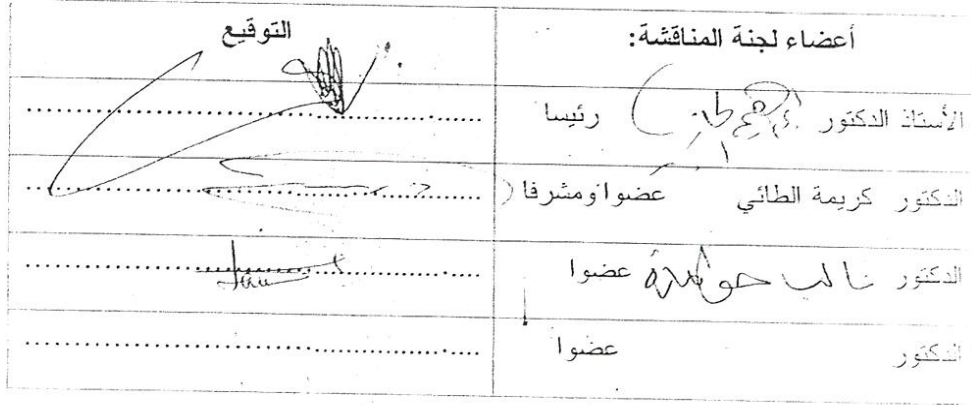 أعضاء لجنة المناقشة: التوقيع
الأستاذ الدكتور رئيسا ................................
الدكتور كريمة الطائي عضوا ومشرفا ................................
الدكتور غالب حوامدة عضوا ................................
الدكتور عضوا ................................